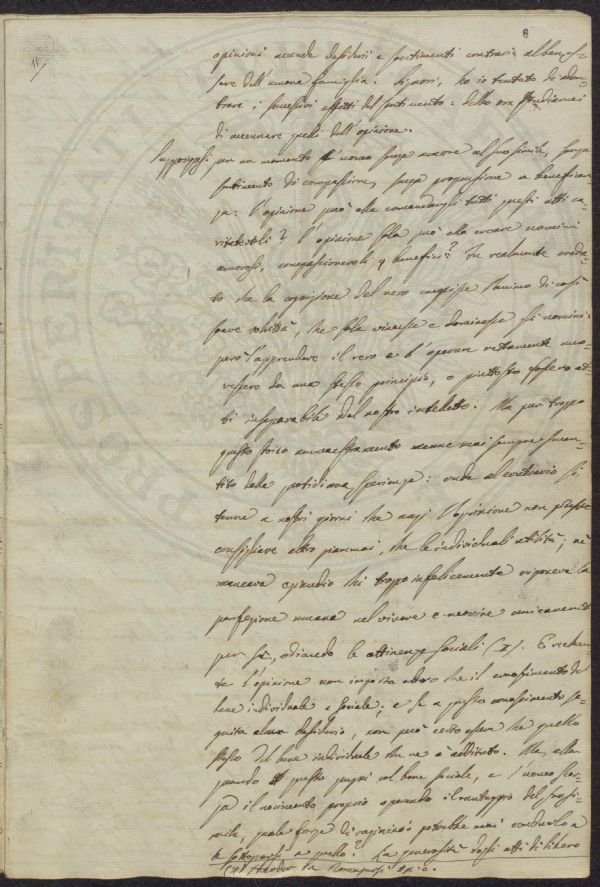 6
opinioni accende desiderii e sentimenti contrarii al benes-
sere dell'umana famiglia. Signori, ho io tentato di
i successivi effetti del sentimento: debbo ora studiarmi
di accennare quelli dell'opinione.
Suppongasi per un momento l'uomo senza amore al suo simile, senza
sentimento di compassione, senza propensione a beneficen-
za: l'opinione può ella comandargli tutti questi atti ca-
ritatevoli? l'opinione sola può ella creare uomini
amorosi, compassionevoli e benefici? Fu realmente credu-
to che la cognizione del vero empisse l'animo di così
soave voluttà, che sola vincesse e dominasse gli uomini:
però l'apprendere il vero e l'operare rettamente muo-
vessero da uno stesso principio, o piuttosto fossero at-
ti inseparabili del nostro intelletto. Ma pur troppo
questo ammaestramento venne mai sempre smen-
tito dalla quotidiana sperienza: onde al contrario si
tenne a nostri giorni che anzi l'opinione non potesse
consigliare altro giammai, che le individuali utilità; nè
mancava eziandio chi troppo infelicemente riponeva la
perfezione umana nel vivere e morire unicamente
per sè, odiando le attinenze sociali (1). E realmen-
te l'opinione non importa altro che il conoscimento del
bene individuale e sociale; e se a questo conoscimento se-
guita alcun desiderio, non può certo essere che quello
stesso del bene individuale che ne è additato. Ma, allor
quando questo pugni col bene sociale, e l'uomo scor-
ga il nocimento proprio operando il vantaggio del suo si-
mile, quale forza di raziocinio potrebbe mai condurlo a
sottoporsi a quello? La generosità degli atti di libero